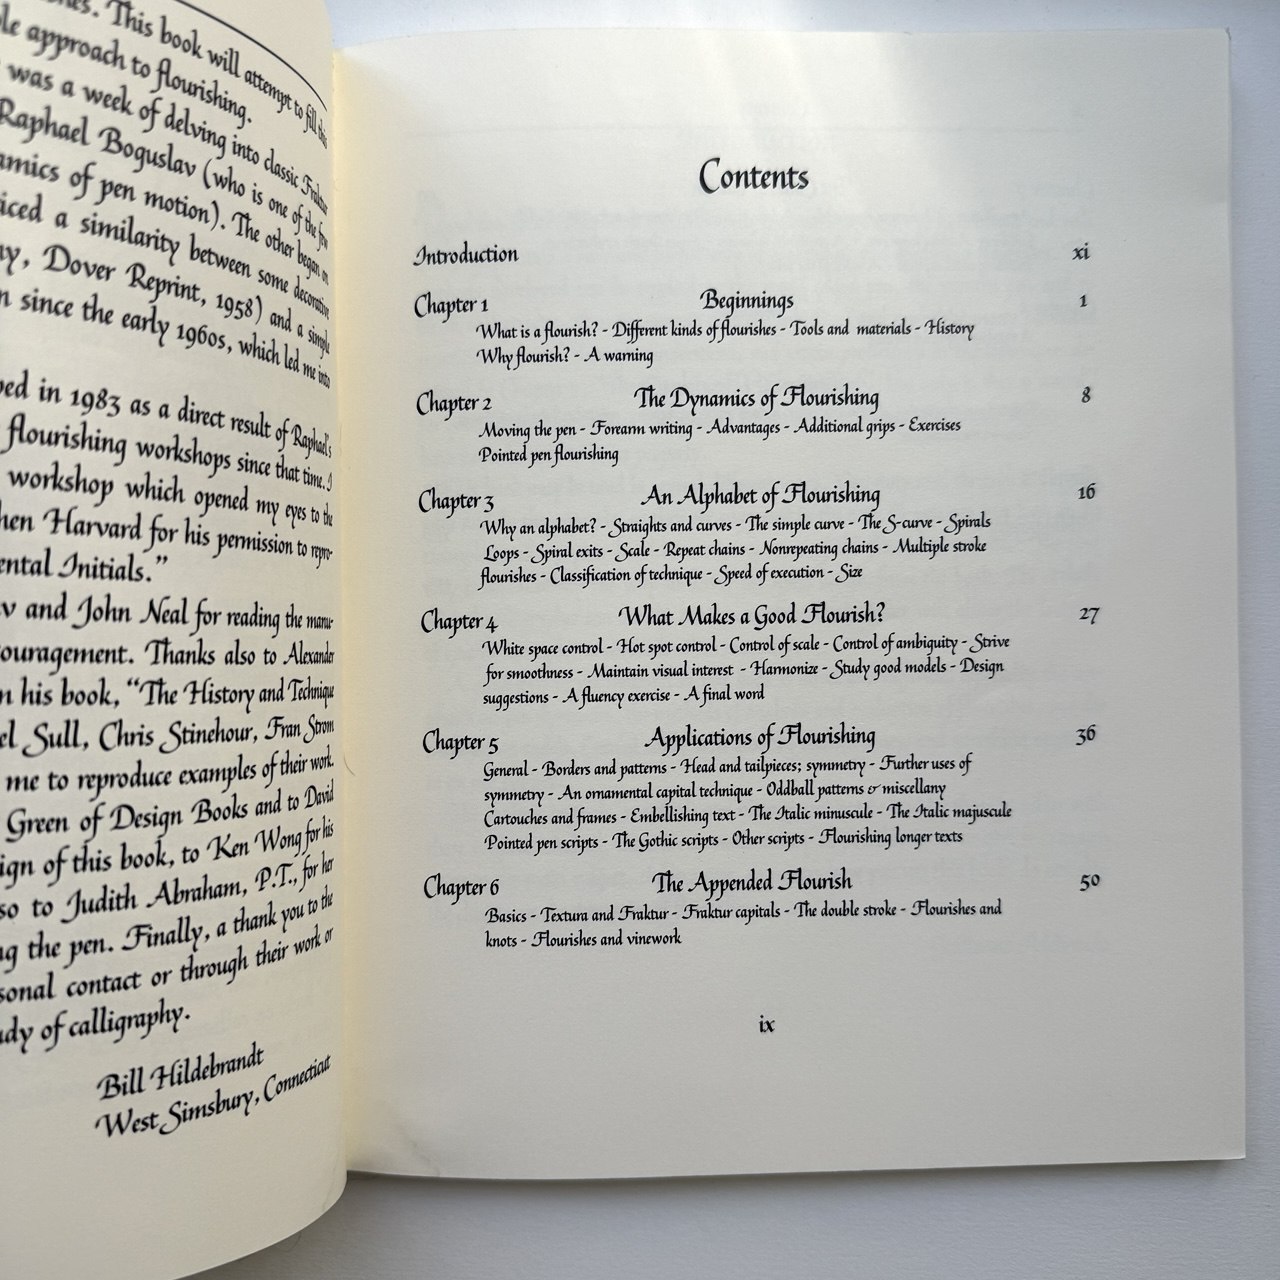 This book will attempt to fill this
approach to flourishing.
was a week of delving into classic Fraktur
Raphael Boguslav (who is one of the few
of pen motion). The other began on
a similarity between some decorative
Dover Reprint, 1958) and a simple
since the early 1960s, which led me into
in 1983 as a direct result of Raphael's
flourishing workshops since that time. I
workshop which opened my eyes to the
Harvard for his permission to repro-
Initials.”
and John Neal for reading the manu-
Thanks also to Alexander
in his book, “The History and Technique
Sull, Chris Stinehour, Fran Strom
me to reproduce examples of their work.
Green of Design Books and to David
of this book, to Ken Wong for his
to Judith Abraham, P.T., for her
the pen. Finally, a thank you to the
contact or through their work or
of calligraphy.
Bill Hildebrandt
West Simsbury, Connecticut
Contents
Introduction xi
Chapter 1 Beginnings 1
What is a flourish? - Different kinds of flourishes - Tools and materials - History
Why flourish? - A warning
Chapter 2 The Dynamics of Flourishing 8
Moving the pen - Forearm writing - Advantages - Additional grips - Exercises
Pointed pen flourishing
Chapter 3 An Alphabet of Flourishing 16
Why an alphabet? - Straights and curves - The simple curve - The S-curve - Spirals
Loops - Spiral exits - Scale - Repeat chains - Nonrepeating chains - Multiple stroke
flourishes - Classification of technique - Speed of execution - Size
Chapter 4 What Makes a Good Flourish? 27
White space control - Hot spot control - Control of scale - Control of ambiguity - Strive
for smoothness - Maintain visual interest - Harmonize - Study good models - Design
suggestions - A fluency exercise - A final word
Chapter 5 Applications of Flourishing 36
General - Borders and patterns - Head and tailpieces; symmetry - Further uses of
symmetry - An ornamental capital technique - Oddball patterns & miscellany
Cartouches and frames - Embellishing text - The Italic minuscule - The Italic majuscule
Pointed pen scripts - The Gothic scripts - Other scripts - Flourishing longer texts
Chapter 6 The Appended Flourish 50
Basics - Textura and Fraktur - Fraktur capitals - The double stroke - Flourishes and
knots - Flourishes and vinework
ix